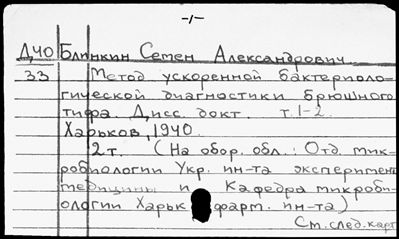 -/-
ДЧО Блинкин Семен Александрович
33 Метод ускоренной бактериоло-
гической диагностики брюшного
тифа. Дисс. докт. т.1-2.
Харьков, 1940.
2 т. (На обор. обл.: Отд. мик-
робиологии Укр. ин-та эксперимент
медицины и Кафедра микроби-
ологии Харьк фарм. ин-та)
См. след. карт